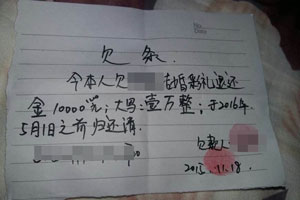 欠条
今本人欠 婚彩礼退还
金10000元,大写:壹万整,于2016年
5月1日之前归还清.
欠款人:
2015.11.18.